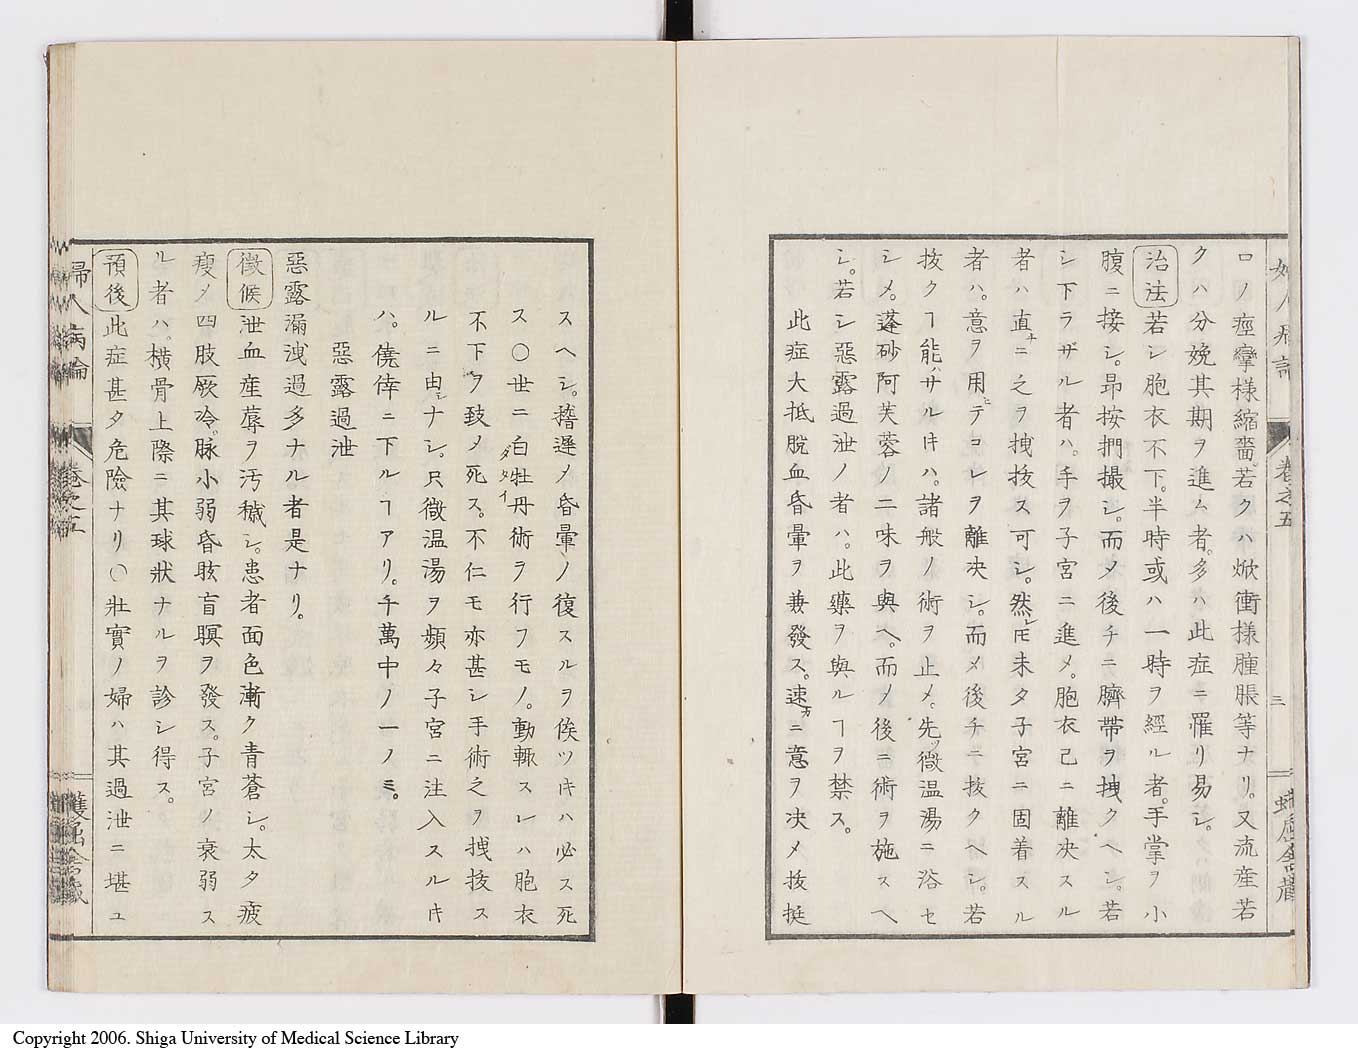 口ノ痙攣様縮嗇。若クハ焮衝様腫脹等ナリ。又流産若
クハ分娩其期ヲ進ム者。多ハ此症ニ罹リ易シ。
治法若シ胞衣不下。半時或ハ一時ヲ經ル者。手掌ヲ小
腹ニ接シ。昻按捫撮シ。而メ後チニ臍帶ヲ拽クヘシ。若
シ下ラザル者ハ。手ヲ子宮ニ進メ。胞衣已ニ離决スル
者ハ直チニ之ヲ拽拔ス可シ。然レ𪜈未タ子宮ニ固着スル
者ハ。意ヲ用ヒテコレヲ離决シ。而メ後チニ拔クヘシ。若
拔クヿ能ハサルキハ。諸般ノ術ヲ止メ。先ツ微温湯ニ浴セ
シメ。蓬砂阿芙蓉ノ二味ヲ與ヘ。而メ後ニ術ヲ施スヘ
シ。若シ惡露過泄ノ者ハ。此藥ヲ與ルヿヲ禁ス。
此症大抵脫血昏暈ヲ兼發ス。速カニ意ヲ决メ拔挺
スヘシ。𨄌遲メ昏暈ノ復スルヲ俟ツキハ必ス死
ス〇世ニ白牡丹術ラ行フモノ。動輙スレハ胞衣
不下ヲ致メ死ス。不仁モ亦甚シ手術之ヲ拽拔ス
ルニ由ナシ。只微温湯ヲ頻々子宮ニ注入スルキ
ハ。僥倖ニ下ルヿアリ。千萬中ノ一ノミ。
惡露過泄
惡露漏洩過多ナル者是ナリ。
徵候泄血産蓐ヲ汚穢シ。患者面色漸ク青蒼シ。太タ疲
瘦メ四肢厥冷。脉小弱昏眩盲瞑ヲ發ス。子宮ノ衰弱ス
ル者ハ。横骨上際ニ其球狀ナルヲ診シ得ス。
預後此症甚タ危險ナリ〇壯實ノ婦ハ其過泄ニ堪ユ
婦人病論 卷之五
Copyright 2006. Shiga University of Medical Science Library